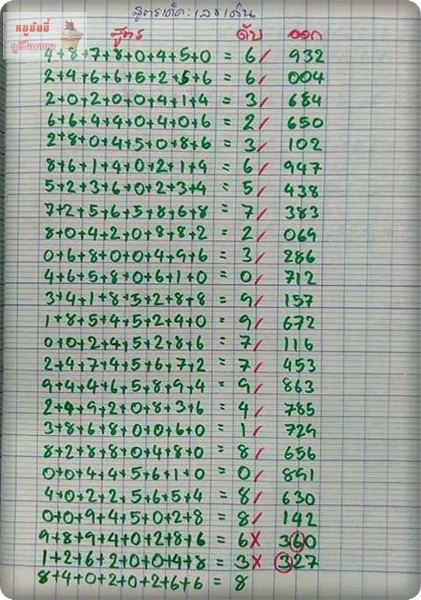 หมูปันปี
สูตรเด็ด:เลขเด่น
สูตร ดับ ออก
4+8+7+8+0+4+5+0 = 6/ 932
2+4+6+6+5+2+5+6 = 6/ 004
2+0+2+0+0+4+1+4 = 3/ 684
6+6+4+4+0+4+0+6 = 2/ 650
2+8+0+4+5+0+8+6 = 3/ 102
8+6+1+4+0+2+1+4 = 6/ 947
5+2+3+6+0+2+3+4 = 5/ 438
7+2+5+6+5+8+6+8 = 7/ 383
8+0+4+2+0+8+8+2 = 2/ 069
0+6+8+0+0+4+9+6 = 3/ 286
4+6+5+8+0+6+1+0 = 0/ 712
3+4+1+8+5+2+8+8 = 9/ 157
1+8+5+4+5+2+4+0 = 9/ 672
0+0+2+4+5+2+8+6 = 7/ 116
2+4+7+4+5+6+7+2 = 7/ 453
9+4+4+6+5+8+9+4 = 9/ 863
2+4+9+2+0+8+3+6 = 4/ 785
3+8+6+8+0+0+6+0 = 1/ 729
8+2+8+8+0+4+8+0 = 8/ 656
0+0+4+4+5+6+1+0 = 0/ 891
4+0+2+2+5+6+5+4 = 8/ 630
0+0+9+4+5+0+2+8 = 8/ 142
9+8+9+4+0+2+8+6 = 6X 360
1+2+6+2+0+0+4+8 = 3X 327
8+4+0+2+0+2+6+6 = 8